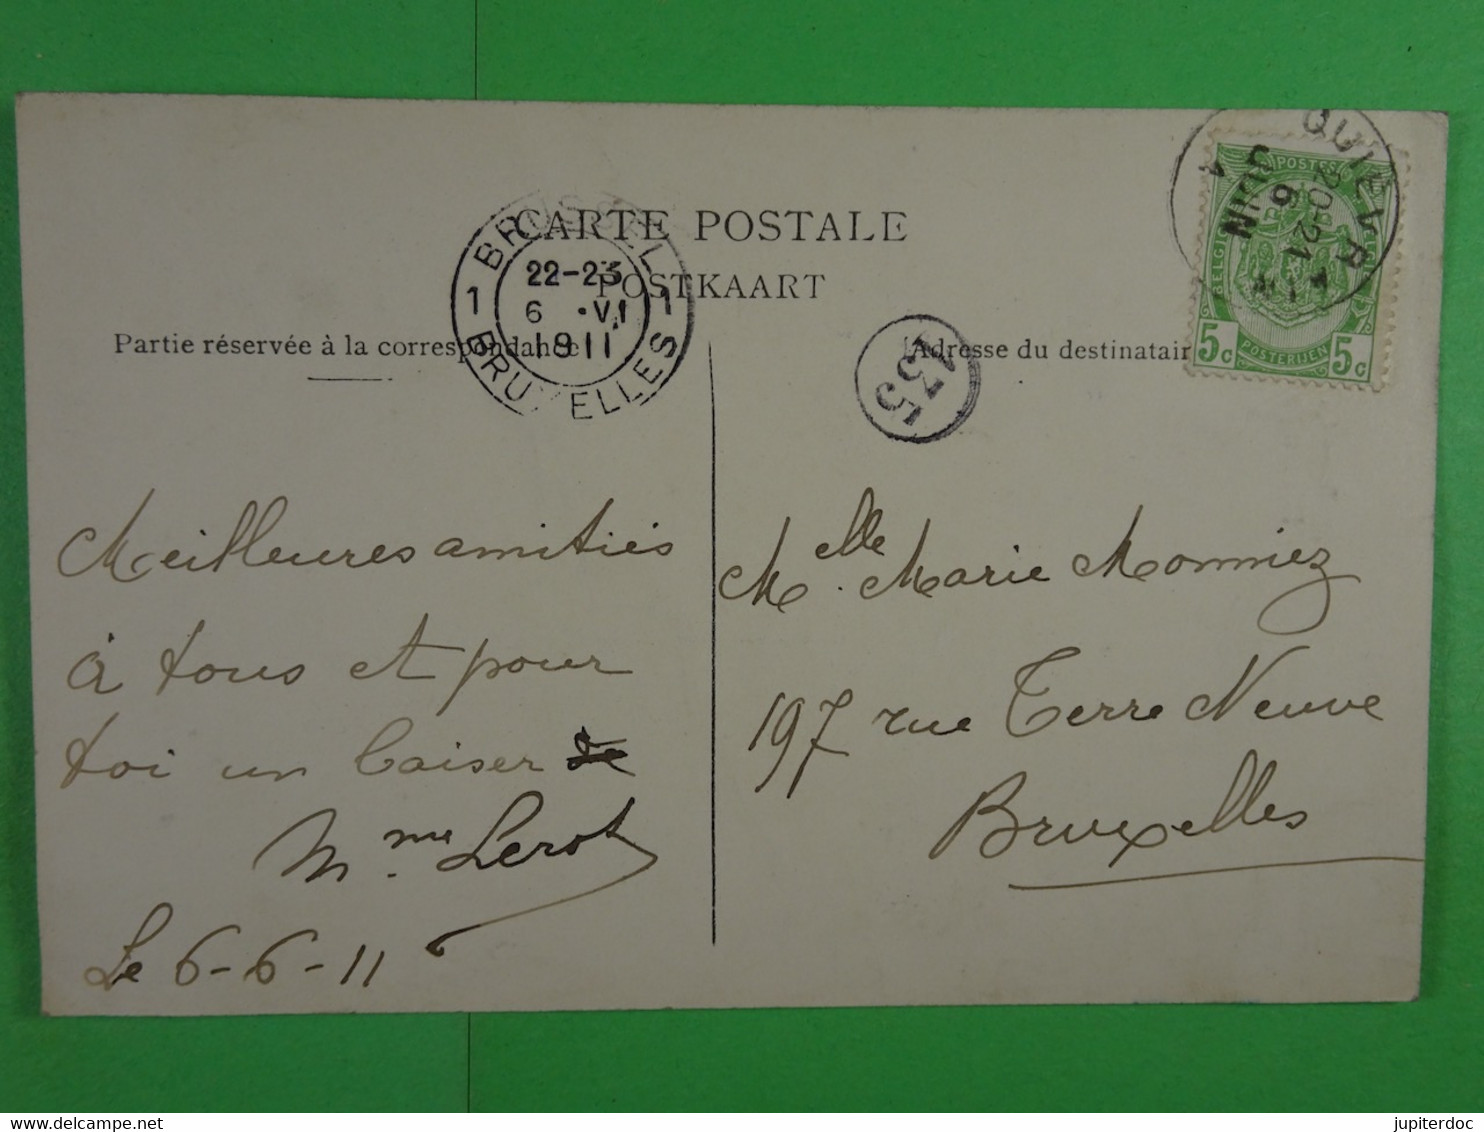 CARTE POSTALE
POSTKAART
Partie réservée à la correspondance
Adresse du destinatair
BRUSSEL
22-23
6 ·VI
1911
BRUXELLES
1 1
135
QUIÉVR
20-21
6
JUIN
POSTES
5c POSTERIJEN 5c
Meilleures amitiés
à tous et pour
toi un baiser de
Mme Lerot
Le 6-6-11
Melle. Marie Monniez
197 rue Terre Neuve
Bruxelles
Delcampe.net
jupiterdoc